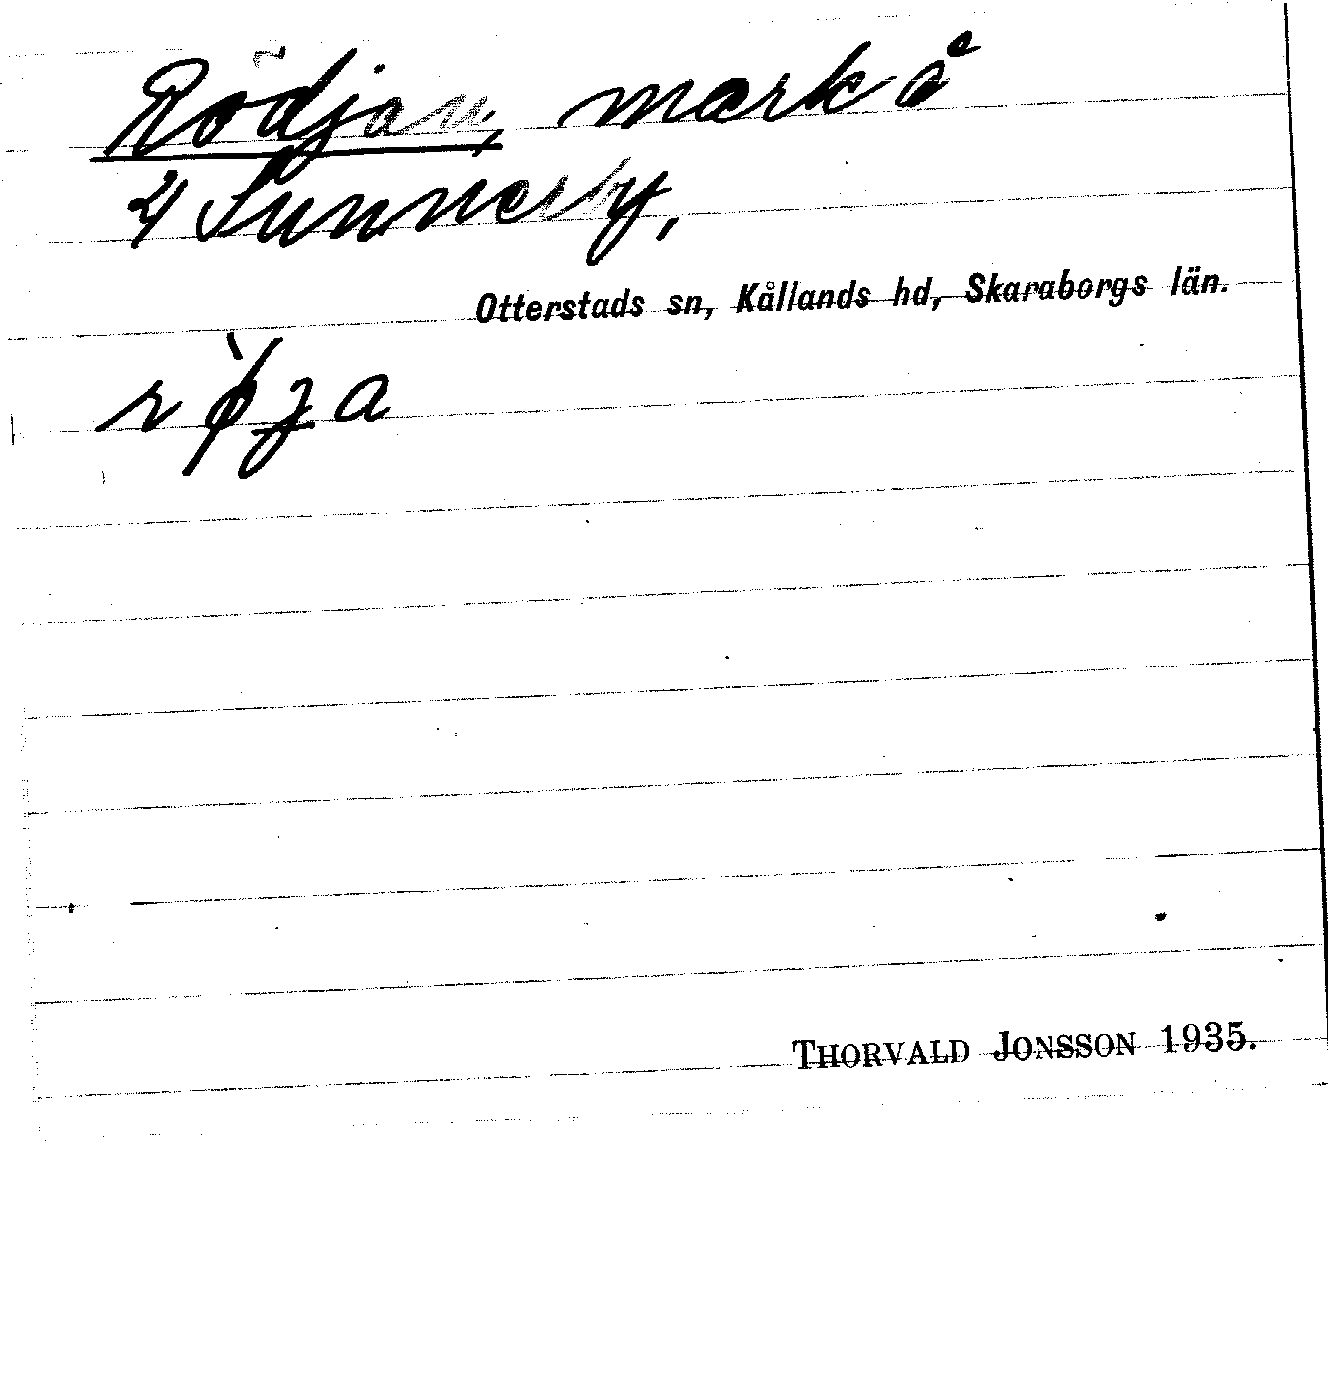 Rödjan, mark å
4 Sunnersby,
Otterstads sn, Kållands hd, Skaraborgs län.
r&#x300;øja
THORVALD JONSSON 1935.